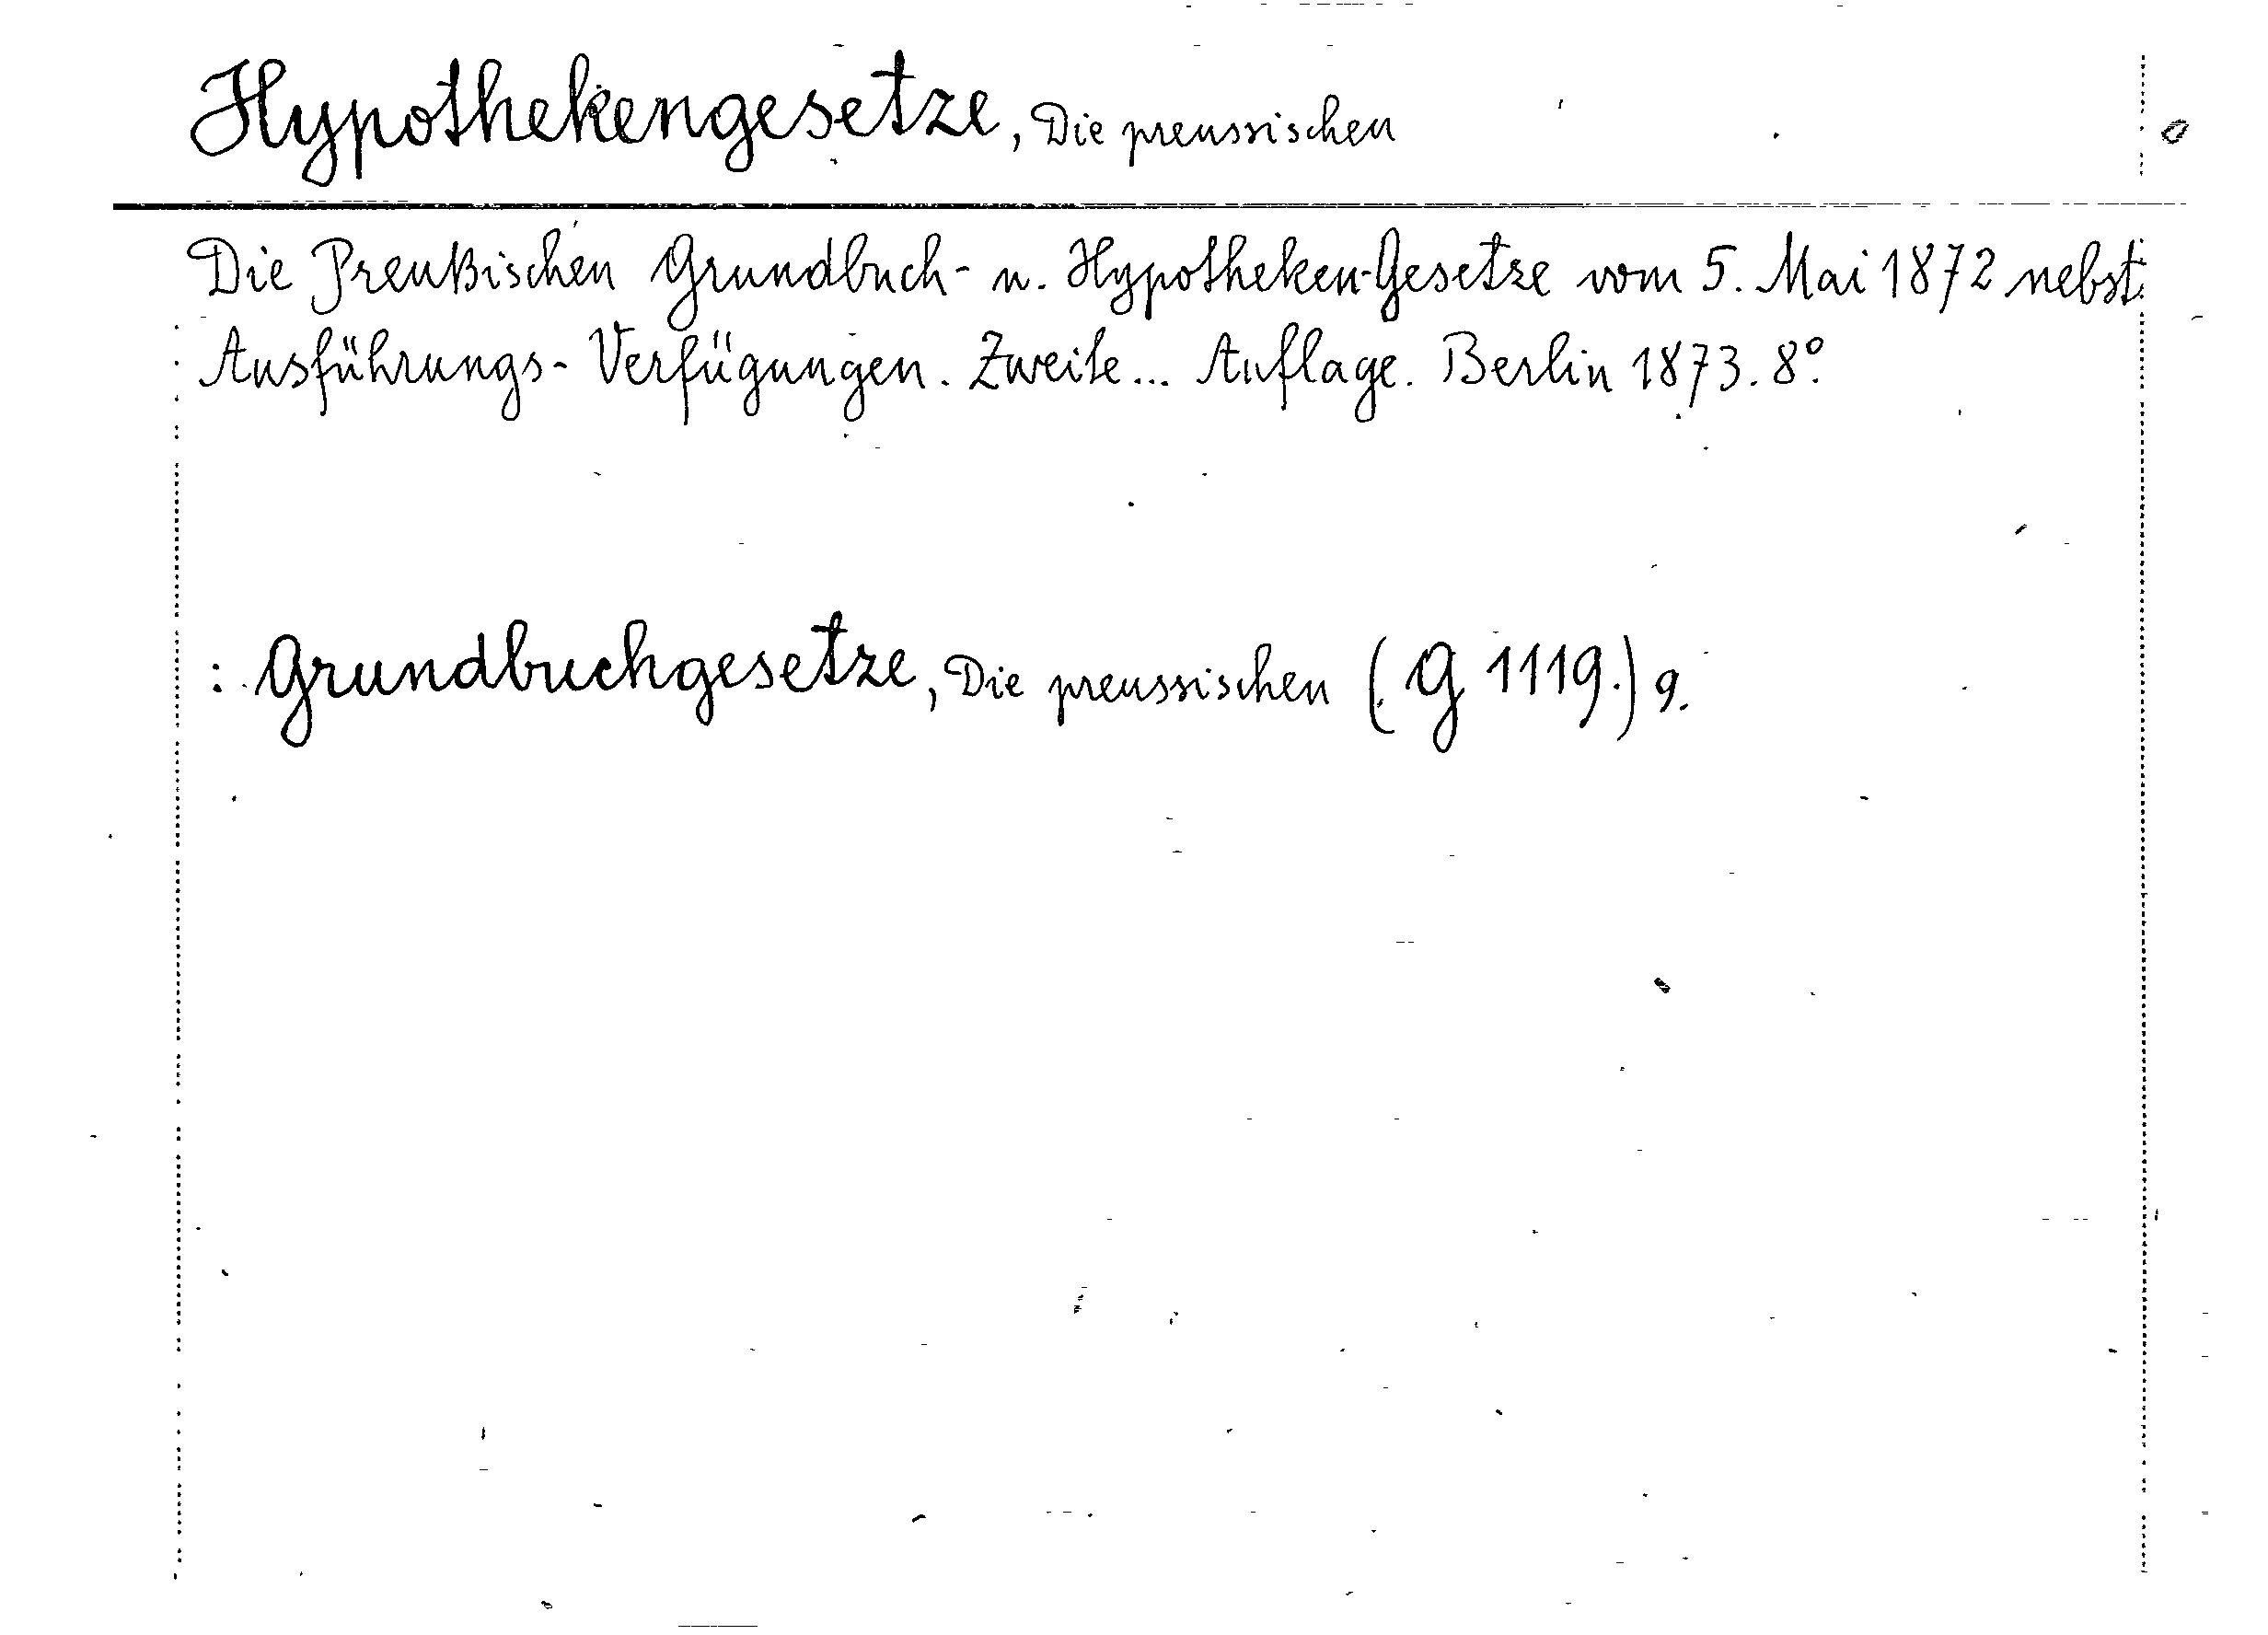 Hypothekengesetze, Die preussischen
Die Preußischen Grundbuch- u. Hypotheken-Gesetze vom 5. Mai 1872 nebst
Ausführungs-Verfügungen. Zweite... Auflage. Berlin 1873. 8°.
: Grundbuchgesetze, Die preussischen (G 1119.) 9.